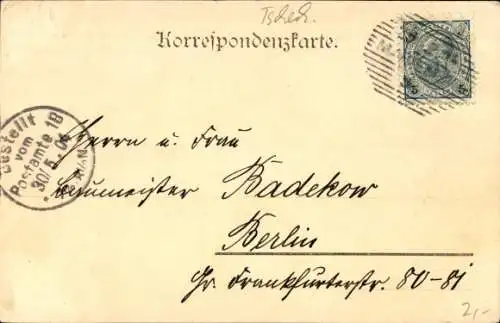 Tschech.
Korrespondenzkarte.
5 5
Bestellt
vom
Postamte 18
30/5.04
Herrn u. Frau
Baumeister Badekow
Berlin
Gr. Frankfurterstr. 80-81
2,-